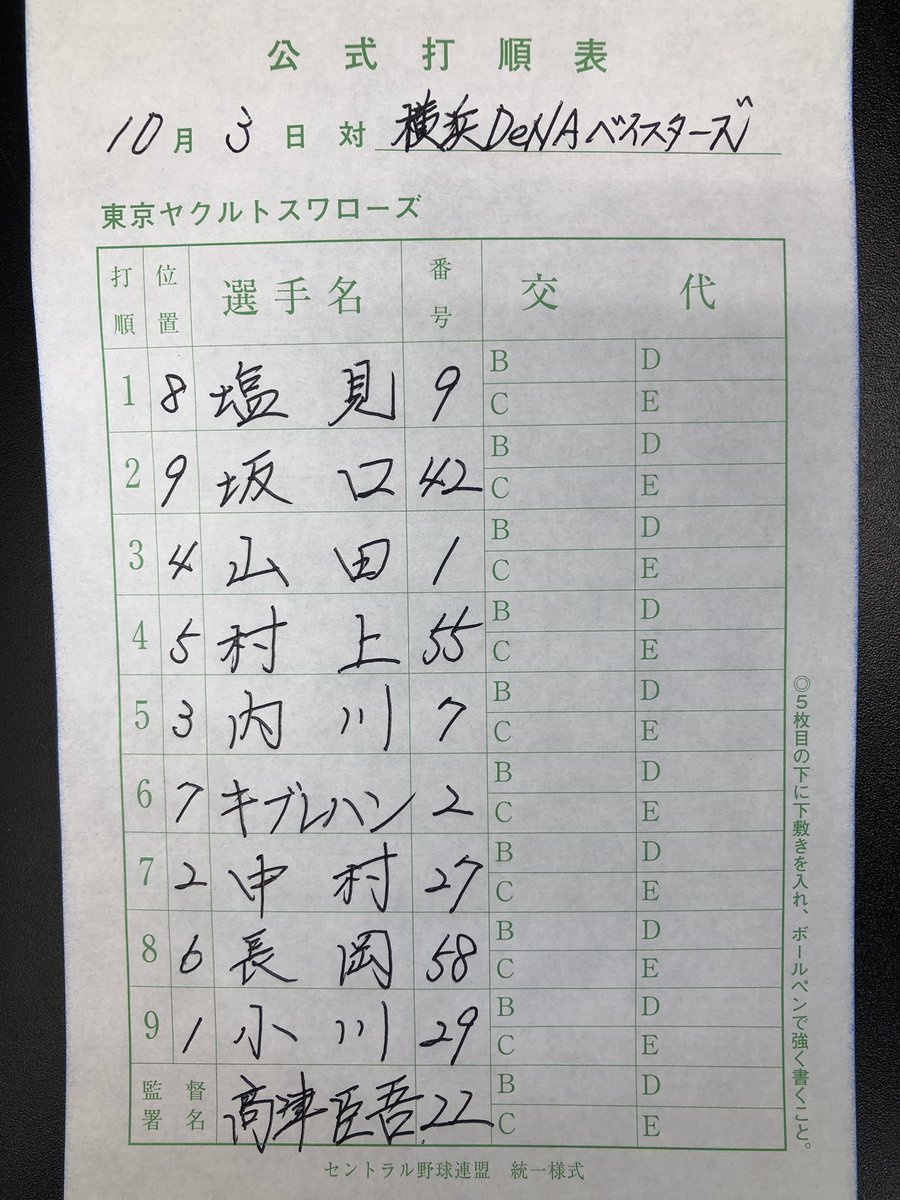 公式打順表
10月3日 対 横浜DeNAベイスターズ
東京ヤクルトスワローズ
打順 位置 選手名 番号 交代
1 8 塩見 9 B D
C E
2 9 坂口 42 B D
C E
3 4 山田 1 B D
C E
4 5 村上 55 B D
C E
5 3 内川 7 B D
C E
6 7 キブレハン 2 B D
C E
7 2 中村 27 B D
C E
8 6 長岡 58 B D
C E
9 1 小川 29 B D
C E
監督署名 高津臣吾 22 B D
C E
セントラル野球連盟 統一様式
◎5枚目の下に下敷きを入れ、ボールペンで強く書くこと。